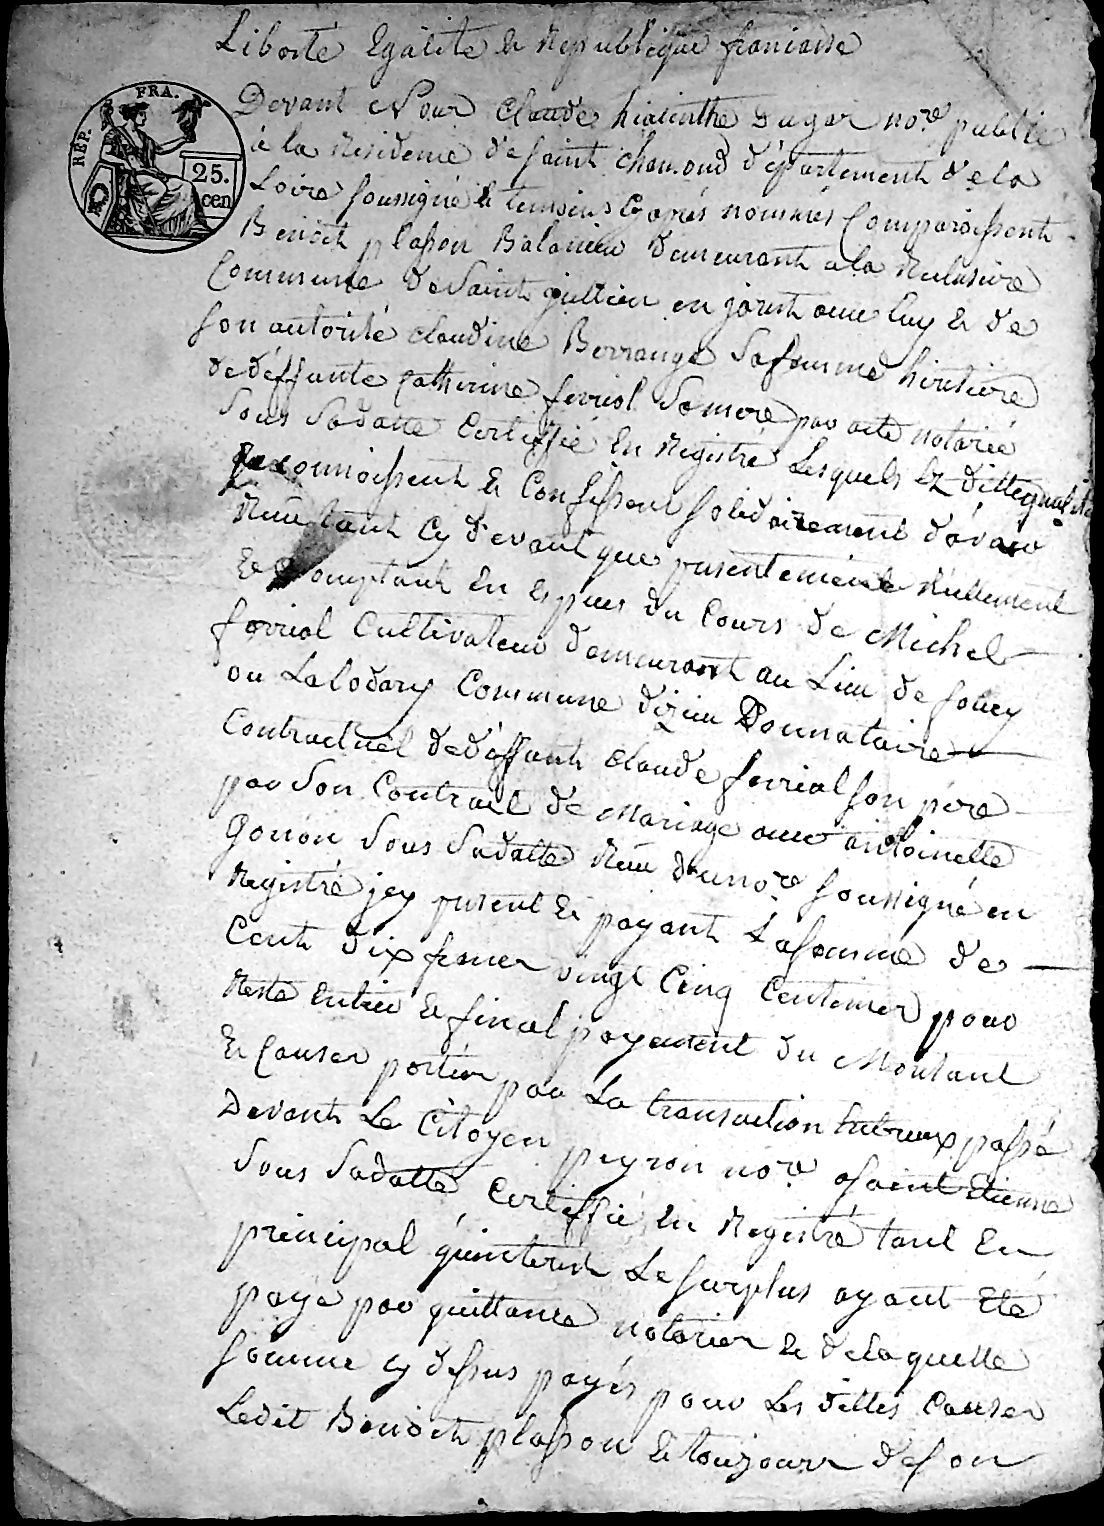 Liberté Egalité et Republique francaise
REP. FRA.
25.
cen
Devant Nous Claude hiacinthe Dugas nore public
à la Residence de saint chamond departement de la
Loire soussigné et temoins cy après nommés Comparoissent
Benoit plasson demeurant a la
Commune de Saint jullien en jarest avec luy et de
son autorité claudine Berrange sa femme hiritiere
de déffunte Catherine ferriol sa mere par acte notarié
Sous Sa datte certiffié En Registré Lesquels
Reconnoissent et Confessent solidairement d'avoir
Reçu tant cy devant que presentement Réellement
et Comptant En Espèces du Cours de Michel
ferriol Cultivateur demeurant au Lieu de
ou Commune d'izieu Donnataire
Contractuel de déffunt claude ferriol son père
par Son Contract de Mariage avec antoinette
Gonon Sous Sa datte Reçu du nore soussigné en
Registré jcy present et payant La somme de
Cent dix francs vingt Cinq Centimes pour
Reste Entier et final payement du Montant
et Causes portées par La transaction Entreux passé
Devant Le Citoyen peyron nore a Saint Etienne
Sous Sa datte Certiffié En Registré tant En
principal qu'interest Le surplus ayant Eté
payé par quittance notariée et de laquelle
somme cy dessus payée pour Les dittes Causes
Ledit Benoit plasson et toujours de son